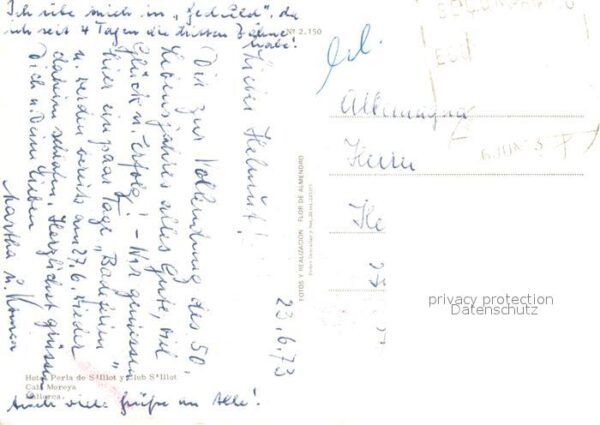 Ich übe mich in "Geduld", da
ich seit 4 Tagen die dritten Zähne
habe!
Nº 2.150
23.6.73
Lieber Helmut!
Dir zur Vollendung des 50.
Lebensjahres alles Gute, viel
Glück u. Erfolg! - Wir geniessen
hier ein paar Tage "Badeferien"
u. werden bereits am 27.6. wieder
daheim sein. Herzlichst grüssen
Dich u. Deine Lieben
Martha u.
Auch viele Grüße an Alle!
Hotel Perla de Sª Illot y Club Sª Illot
Cala Moreya
Mallorca.
FOTOS Y REALIZACION FLOR DE ALMENDRO
Allemagne
Herrn
He
privacy protection
Datenschutz